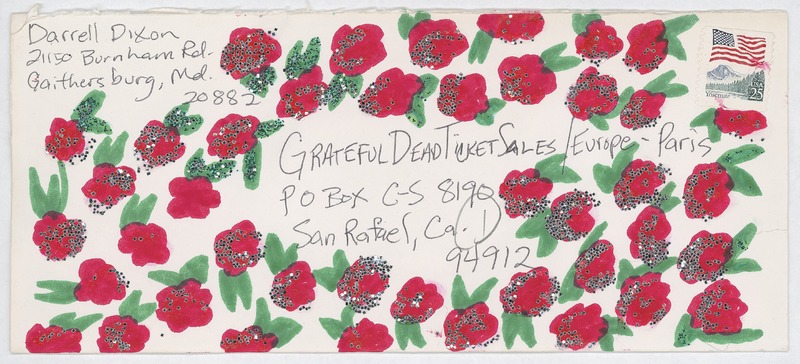 Darrell Dixon
21150 Burnham Rd.
Gaithersburg, Md.
20882
USA
25
Yosemite
GRATEFUL DEAD TICKET SALES / Europe - Paris
P O BOX C-S 8190
San Rafael, Ca.
1
94912